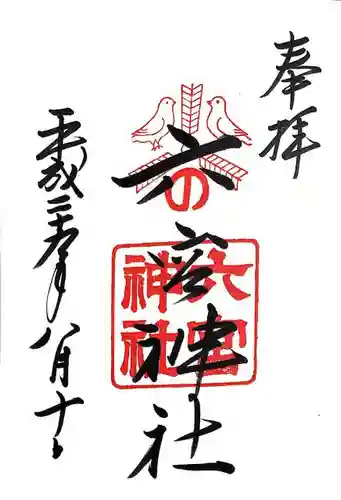 奉拝
六の宮神社
六宮
神社
平成二十年八月十日